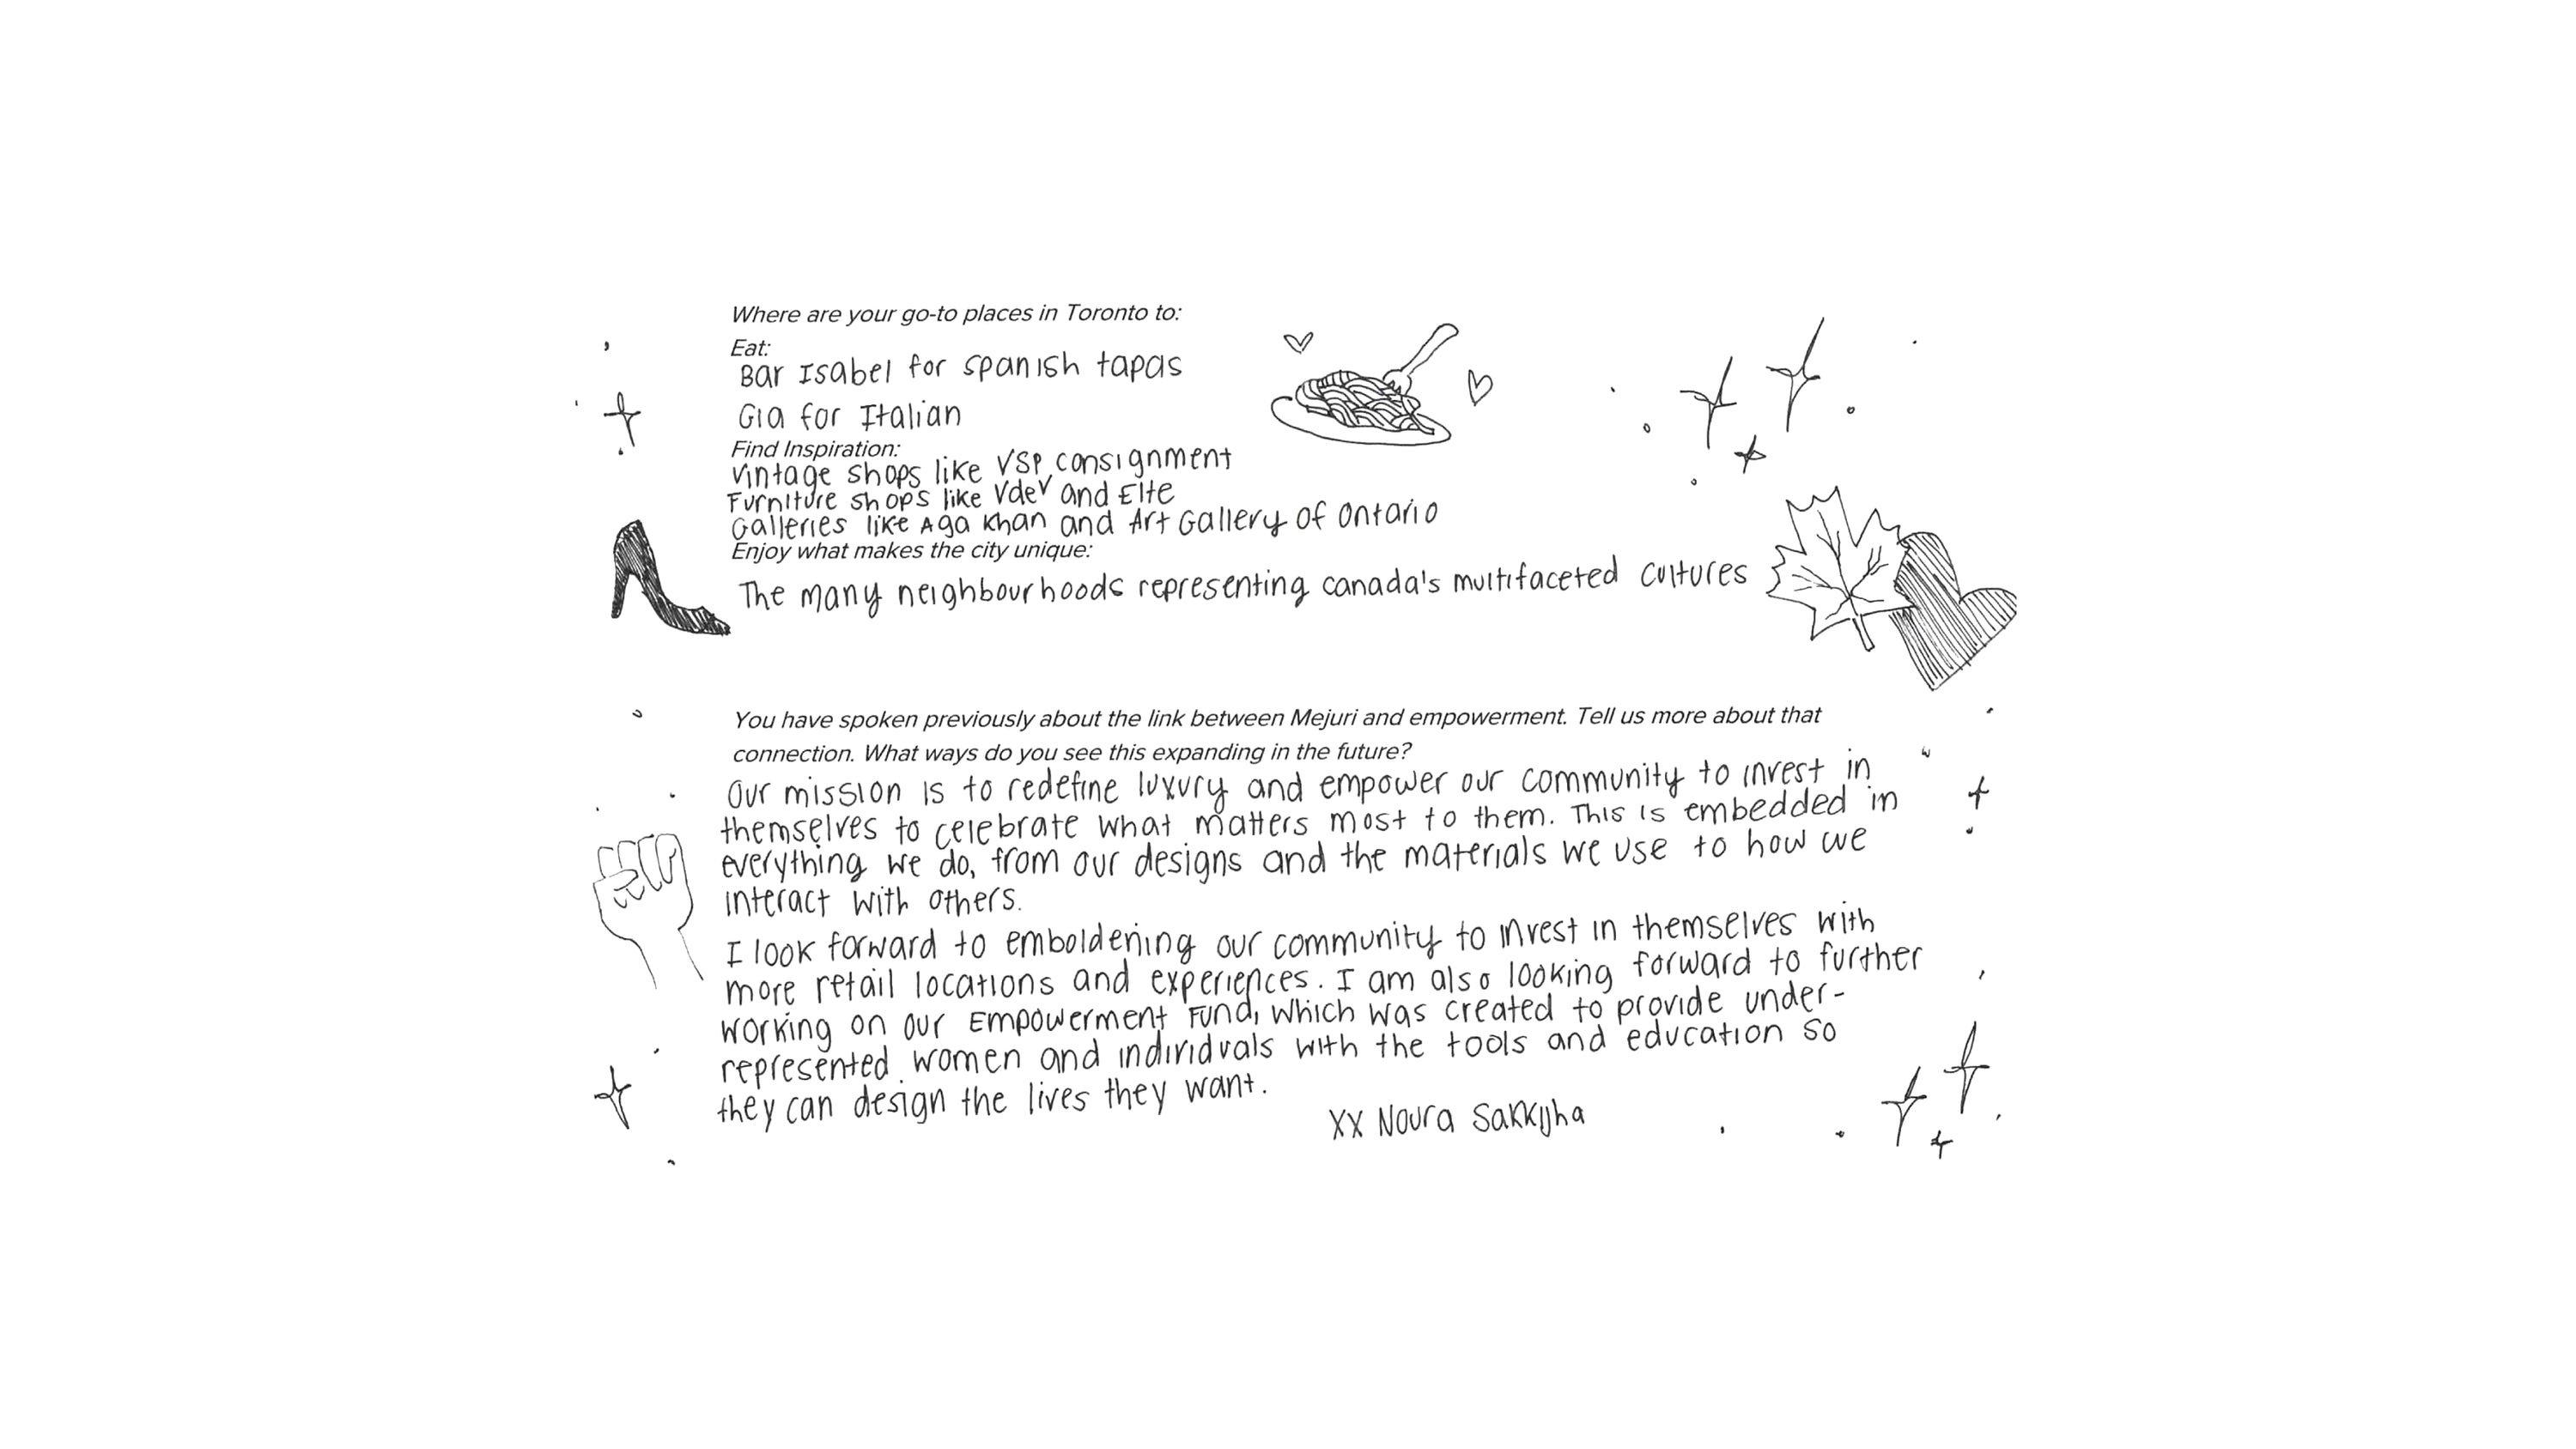 Where are your go-to places in Toronto to:
Eat:
Bar Isabel for spanish tapas
Gia for Italian
Find Inspiration:
Vintage shops like VSP consignment
Furniture shops like VdeV and Elte
Galleries like Aga Khan and Art Gallery of Ontario
Enjoy what makes the city unique:
The many neighbourhoods representing canada's multifaceted cultures
You have spoken previously about the link between Mejuri and empowerment. Tell us more about that
connection. What ways do you see this expanding in the future?
Our mission is to redefine luxury and empower our community to invest in
themselves to celebrate what matters most to them. This is embedded in
everything we do, from our designs and the materials we use to how we
interact with others.
I look forward to emboldening our community to invest in themselves with
more retail locations and experiences. I am also looking forward to further
working on our Empowerment Fund, which was created to provide under-
represented women and individuals with the tools and education so
they can design the lives they want.
XX Noura Sakkijha